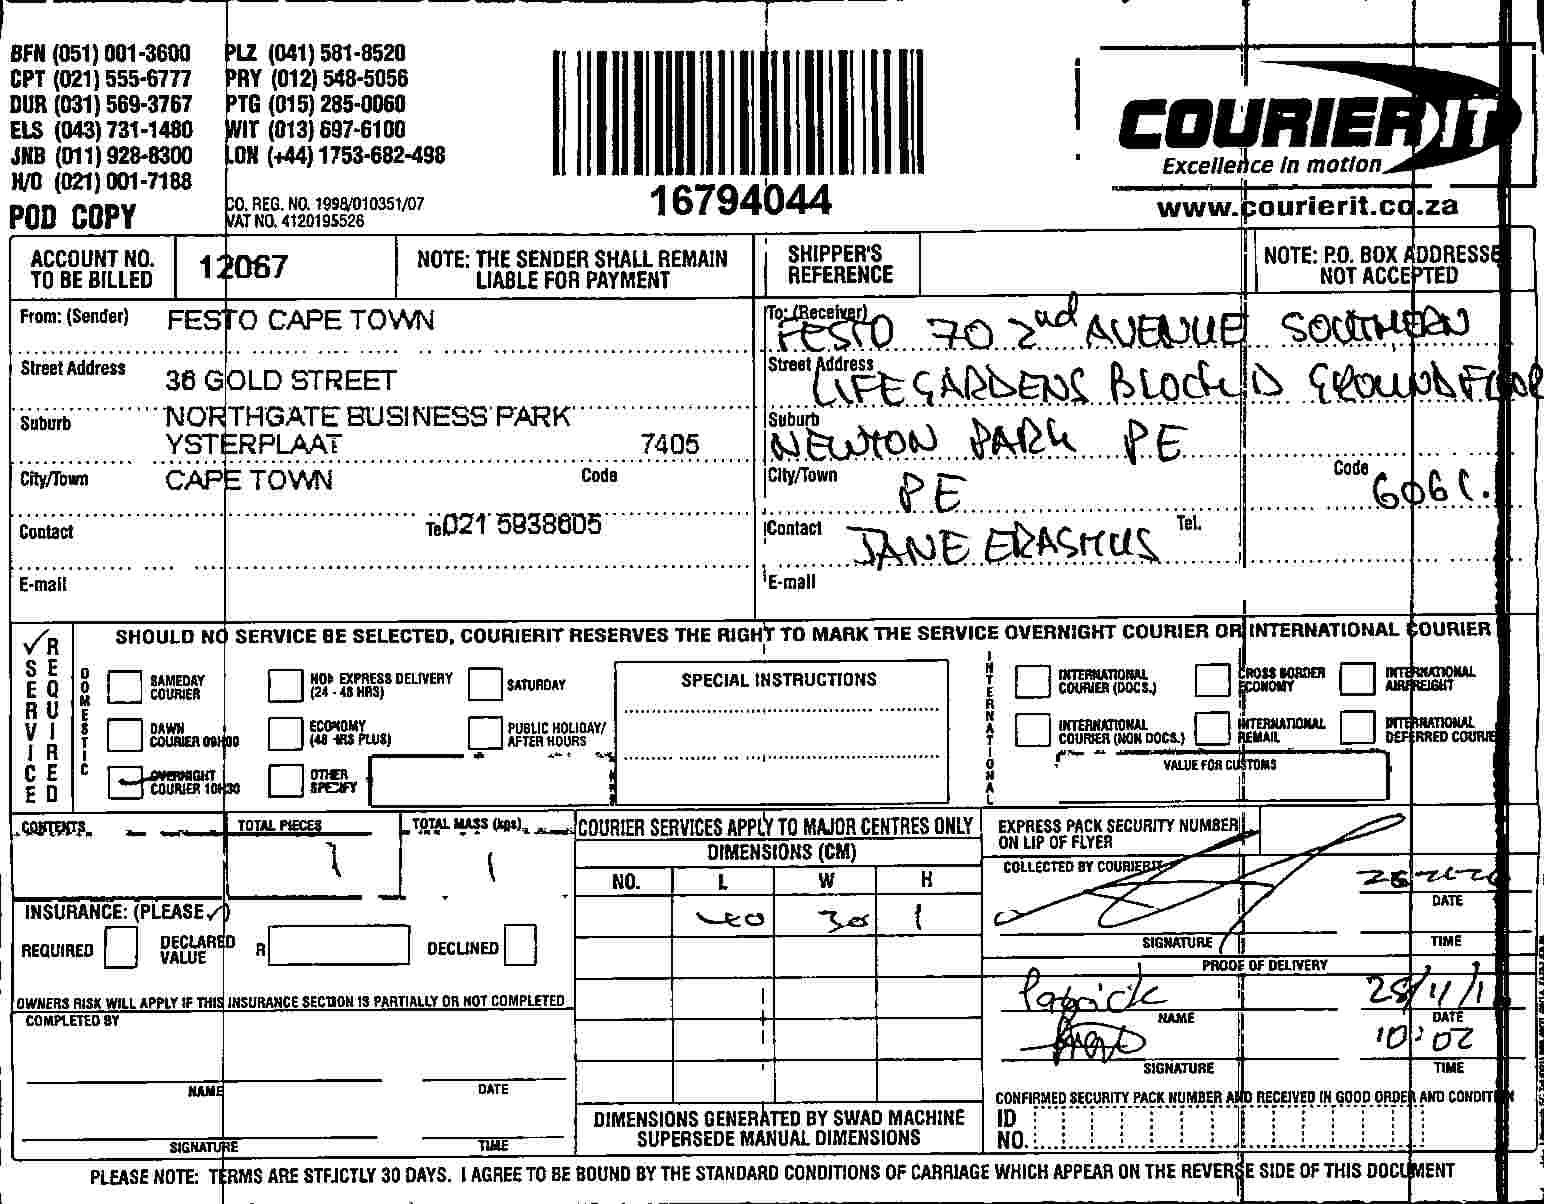 BFN (051) 001-3600 PLZ (041) 581-8520
CPT (021) 555-6777 PRY (012) 548-5056
DUR (031) 569-3767 PTG (015) 285-0060
ELS (043) 731-1480 WIT (013) 697-6100
JNB (011) 928-8300 LON (+44) 1753-682-498
H/O (021) 001-7188
POD COPY
CO. REG. NO. 1998/010351/07
VAT NO. 4120195526
16794044
COURIER IT
Excellence in motion
www.courierit.co.za
ACCOUNT NO. TO BE BILLED
12067
NOTE: THE SENDER SHALL REMAIN LIABLE FOR PAYMENT
SHIPPER'S REFERENCE
NOTE: P.O. BOX ADDRESSE NOT ACCEPTED
From: (Sender) FESTO CAPE TOWN
Street Address 36 GOLD STREET
Suburb NORTHGATE BUSINESS PARK
YSTERPLAAT 7405
City/Town CAPE TOWN Code
Contact Tel 021 5938605
E-mail
To: (Receiver) FESTO 70 2nd AVENUE SOUTHERN
Street Address LIFE GARDENS BLOCK D GROUND FLOOR
Suburb NEWTON PARK PE
City/Town PE Code 6061.
Contact JANE ERASMUS Tel.
E-mail
SERVICE REQUIRED
SHOULD NO SERVICE BE SELECTED, COURIERIT RESERVES THE RIGHT TO MARK THE SERVICE OVERNIGHT COURIER OR INTERNATIONAL COURIER
DOMESTIC
SAMEDAY COURIER
DAWN COURIER 09H00
OVERNIGHT COURIER 10H30
EXPRESS DELIVERY (24 - 48 HRS)
ECONOMY (48 HRS PLUS)
OTHER SPECIFY
SATURDAY
PUBLIC HOLIDAY/ AFTER HOURS
SPECIAL INSTRUCTIONS
INTERNATIONAL
INTERNATIONAL COURIER (DOCS.)
INTERNATIONAL COURIER (NON DOCS.)
CROSS BORDER ECONOMY
INTERNATIONAL REMAIL
INTERNATIONAL AIRFREIGHT
INTERNATIONAL DEFERRED COURIE
VALUE FOR CUSTOMS
CONTENTS
TOTAL PIECES
1
TOTAL MASS (kgs)
1
INSURANCE: (PLEASE ✓)
REQUIRED DECLARED VALUE R DECLINED
OWNERS RISK WILL APPLY IF THIS INSURANCE SECTION IS PARTIALLY OR NOT COMPLETED
COMPLETED BY
NAME DATE
SIGNATURE TIME
COURIER SERVICES APPLY TO MAJOR CENTRES ONLY
DIMENSIONS (CM)
NO. L W H
40 30 1
DIMENSIONS GENERATED BY SWAD MACHINE
SUPERSEDE MANUAL DIMENSIONS
EXPRESS PACK SECURITY NUMBER
ON LIP OF FLYER
COLLECTED BY COURIERIT
DATE
SIGNATURE TIME
PROOF OF DELIVERY
Patrick 28/11/1
NAME DATE
10:02
SIGNATURE TIME
CONFIRMED SECURITY PACK NUMBER AND RECEIVED IN GOOD ORDER AND CONDITION
ID NO.
PLEASE NOTE: TERMS ARE STRICTLY 30 DAYS. I AGREE TO BE BOUND BY THE STANDARD CONDITIONS OF CARRIAGE WHICH APPEAR ON THE REVERSE SIDE OF THIS DOCUMENT